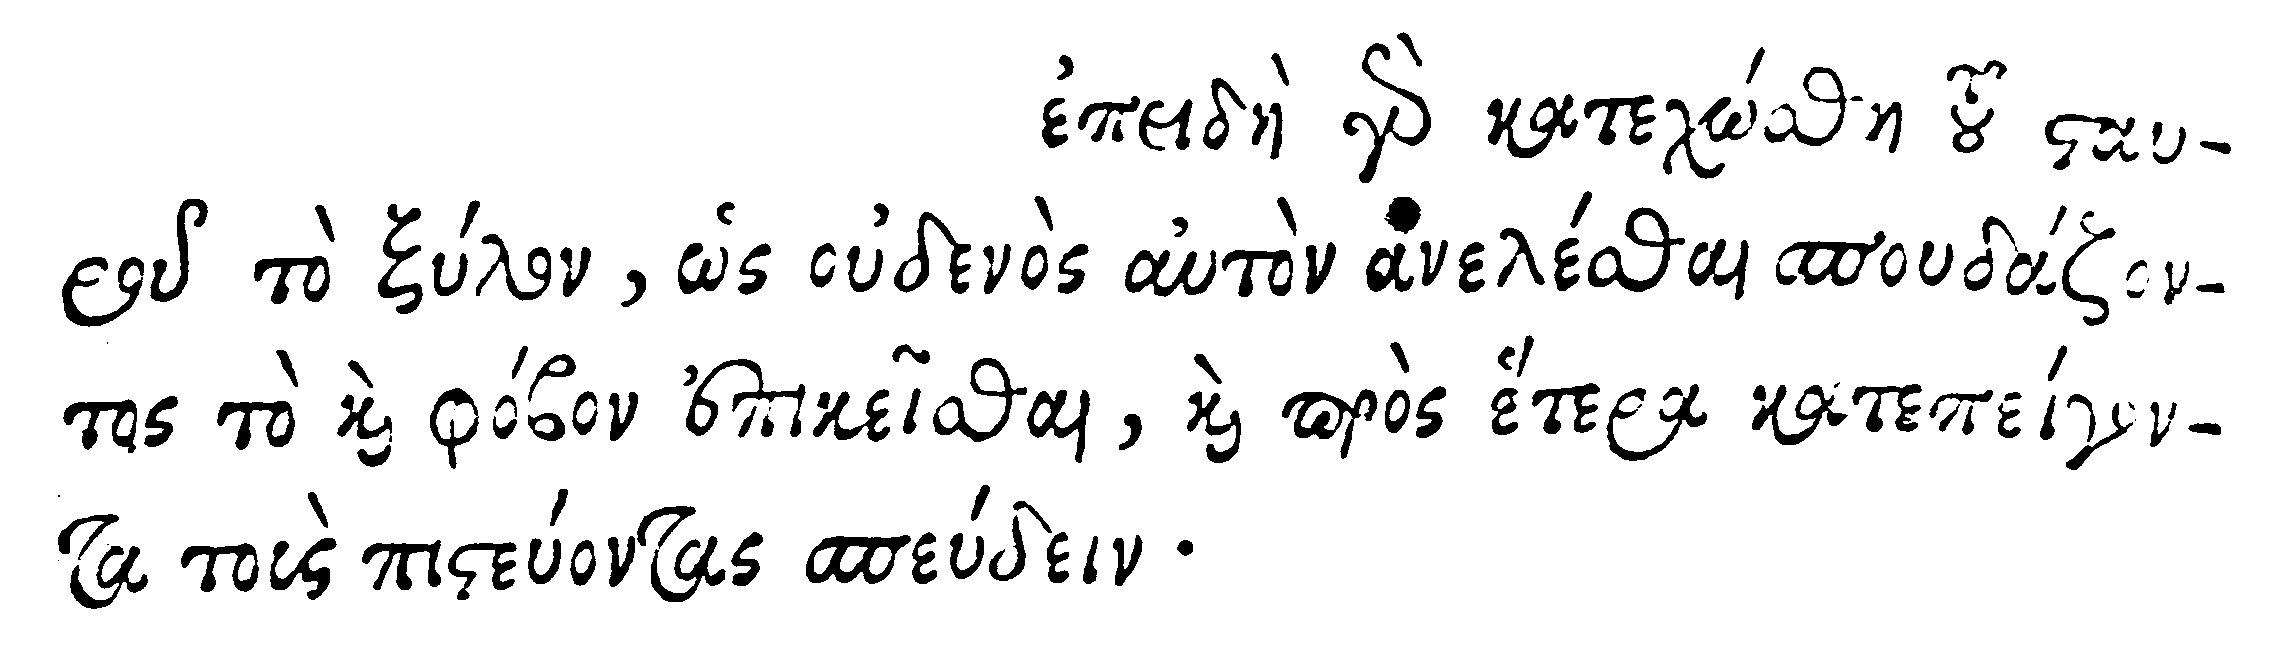 ἐπειδὴ γὰρ κατεχώσθη τοῦ σταυ-
ροῦ τὸ ξύλον, ὡς οὐδενὸς αὐτὸν ἀνελέσθαι σπουδάζον-
τος τὸ καὶ φόβον ἐπικεῖσθαι, καὶ πρὸς ἕτερα κατεπείγον-
τα τοὺς πιστεύοντας σπεύδειν.